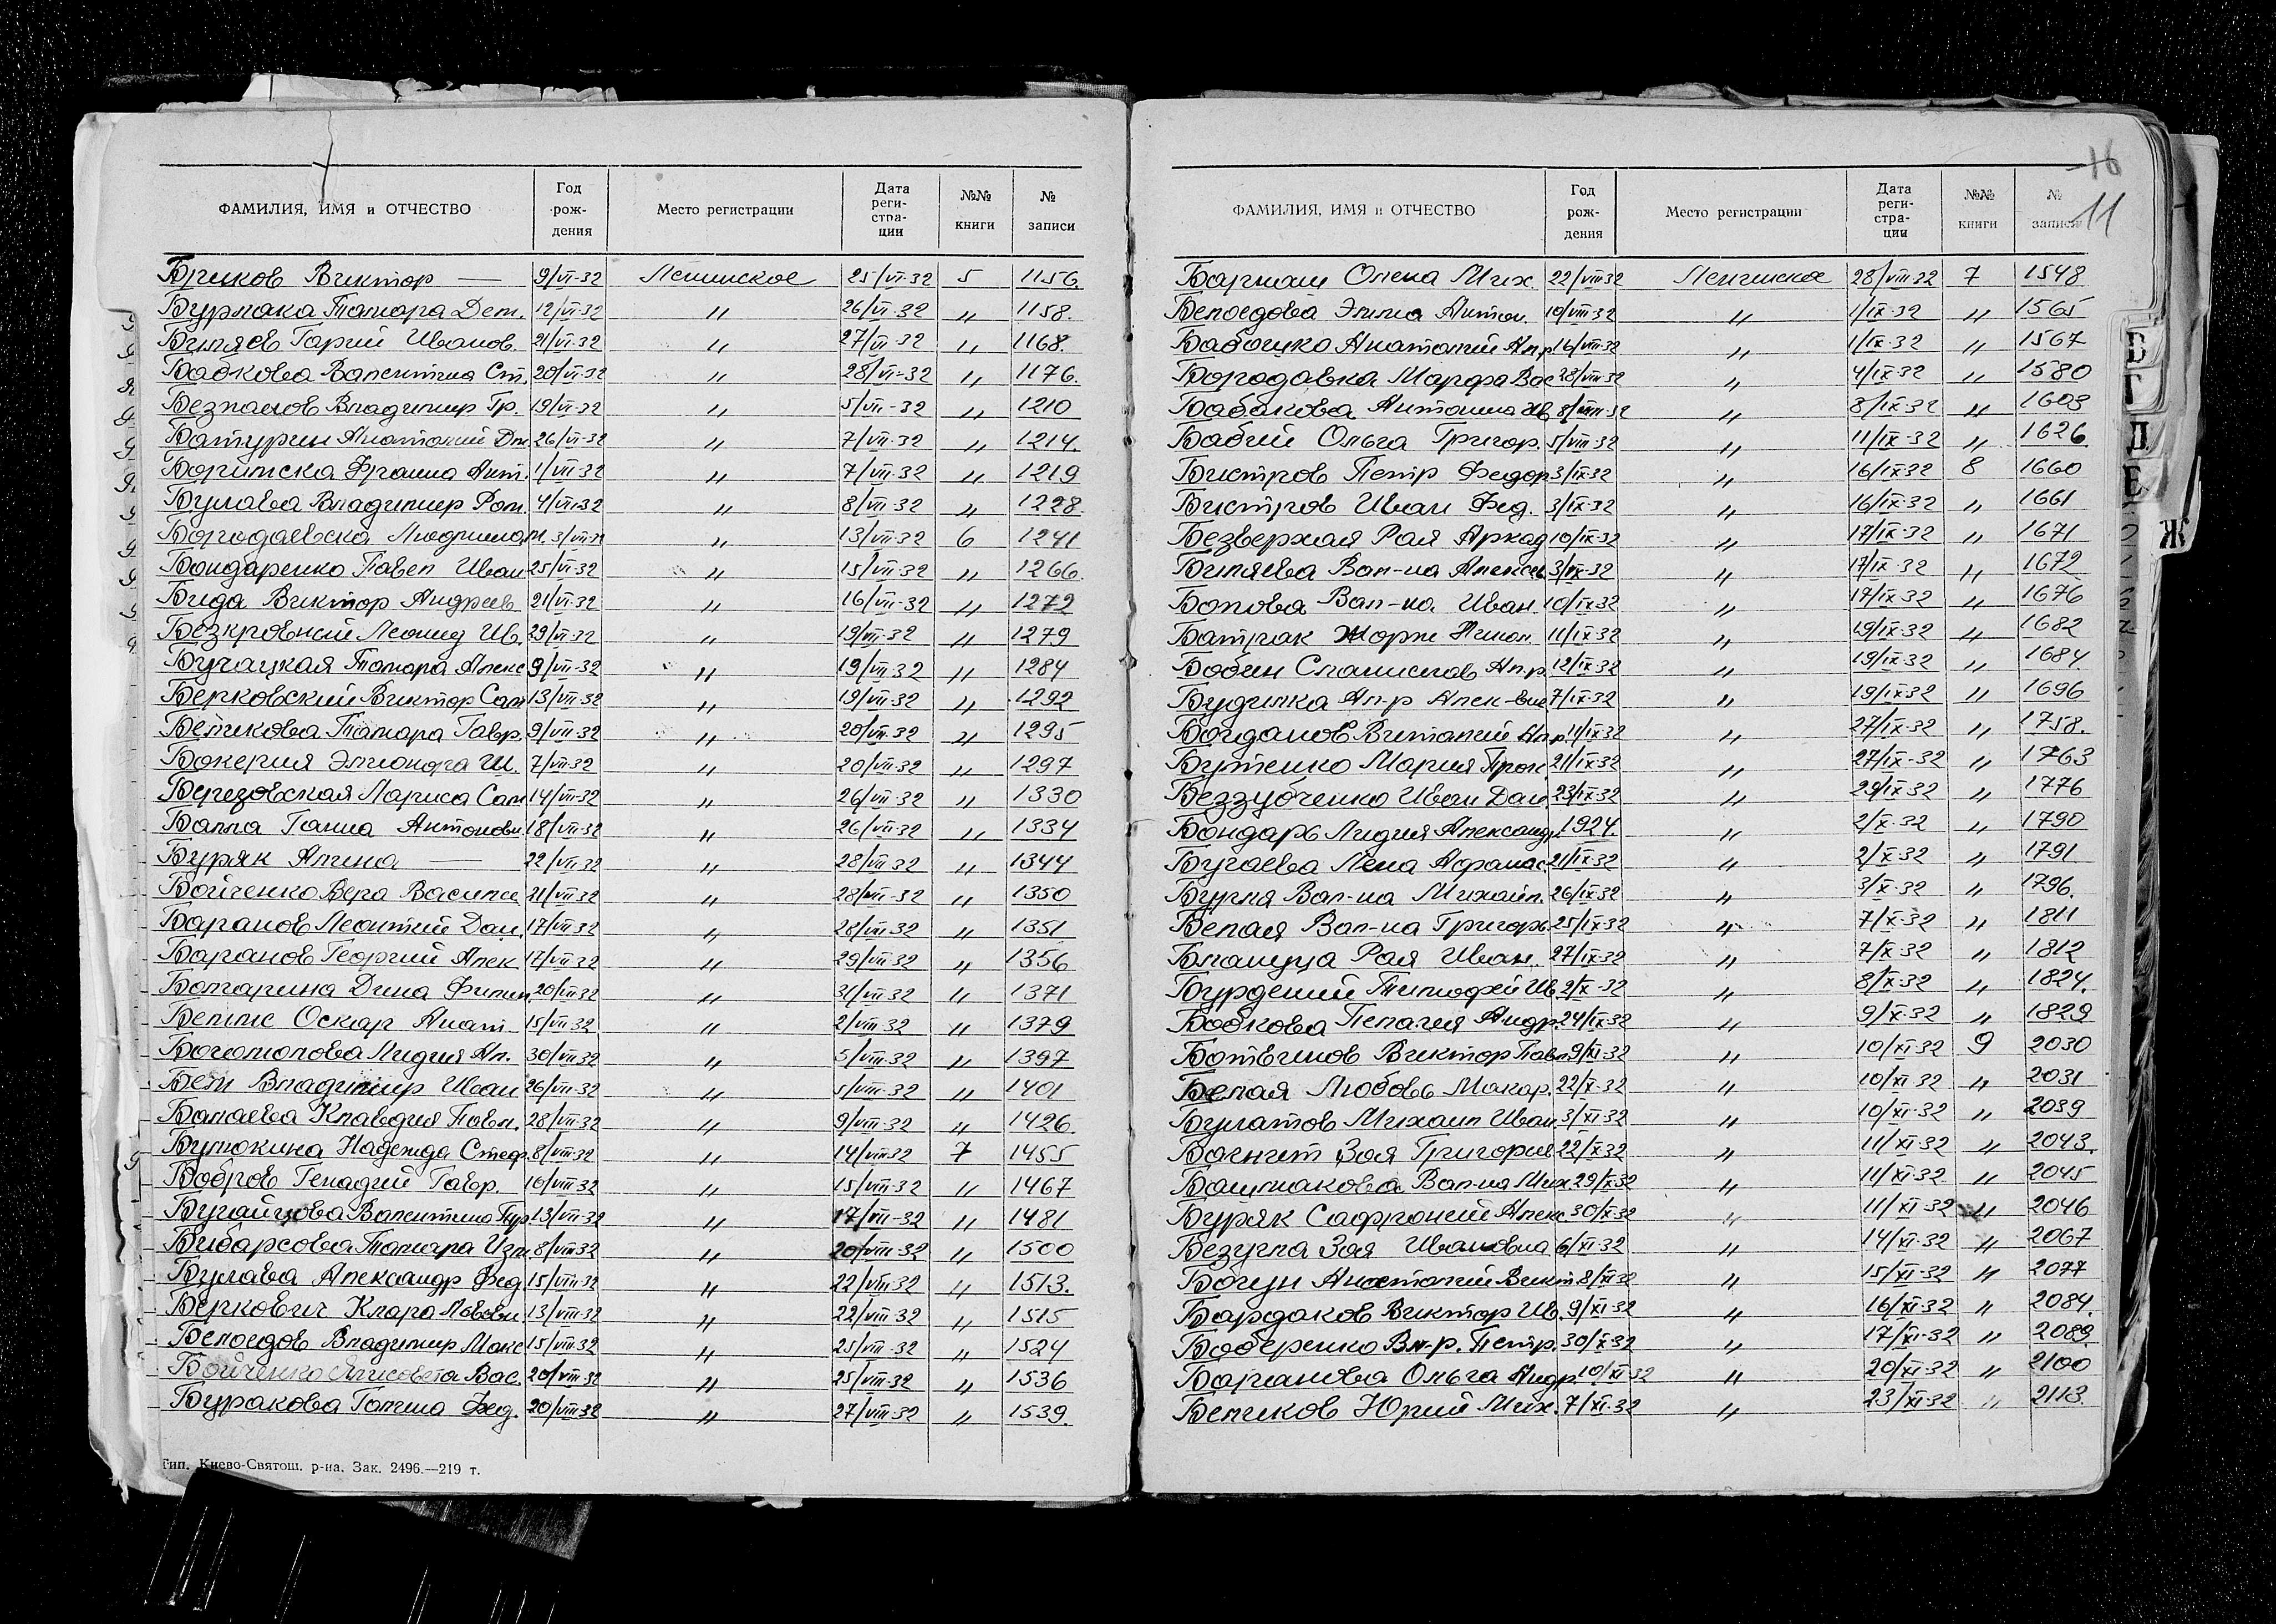 ФАМИЛИЯ, ИМЯ и ОТЧЕСТВО | Год рождения | Место регистрации | Дата регистрации | №№ книги | № записи
Бриков Виктор — 9/VI-32 Ленинское 25/VI-32 5 1156.
Бурлака Тамара Дем. 12/VI-32 〃 26/VI-32 〃 1158.
Биляев Гарий Иванов. 21/VI-32 〃 27/VI-32 〃 1168.
Бабкова Валентина Ст. 20/VI-32 〃 28/VI-32 〃 1176.
Безпалов Владимир Гр. 19/VI-32 〃 5/VII-32 〃 1210
Батурин Анатолий Дм. 26/VI-32 〃 7/VII-32 〃 1214.
Франца Ант. 1/VII-32 〃 7/VII-32 〃 1219
Булава Владимир Ром. 4/VII-32 〃 8/VII-32 〃 1228.
Бородаевска Людмила 3/VII-32 〃 13/VII-32 6 1241
Бондаренко Павел Иван 25/VI-32 〃 15/VII-32 〃 1266.
Бида Виктор Андреев 21/VI-32 〃 16/VII-32 〃 1272
Безкровный Леонид Ив. 29/VI-32 〃 19/VII-32 〃 1279
Бучацкая Тамара Алекс 9/VII-32 〃 19/VII-32 〃 1284
Берковский Виктор Сам 13/VII-32 〃 19/VII-32 〃 1292
Беликова Тамара Гавр. 9/VII-32 〃 20/VII-32 〃 1295
Бокерия Элионора Ш. 7/VII-32 〃 20/VII-32 〃 1297
Березовская Лариса Сам 14/VII-32 〃 26/VII-32 〃 1330
Балла Ганна Антоновн 18/VII-32 〃 26/VII-32 〃 1334
Буряк Алина — 22/VII-32 〃 28/VII-32 〃 1344
Бойченко Вера Василье 21/VII-32 〃 28/VII-32 〃 1350
Баранов Леонтий Дан. 17/VII-32 〃 28/VII-32 〃 1351
Баранов Георгий Алек 17/VII-32 〃 29/VII-32 〃 1356
Дина Филип 20/VII-32 〃 31/VII-32 〃 1371
Оскар Анат 15/VII-32 〃 2/VIII-32 〃 1379
Богомолова Лидия Ал. 30/VII-32 〃 5/VIII-32 〃 1397
Владимир Иван 26/VII-32 〃 5/VIII-32 〃 1401
Балаева Клавдия Павл. 28/VII-32 〃 9/VIII-32 〃 1426.
Бутокина Надежда Стеф. 8/VIII-32 〃 14/VIII-32 7 1455
Бобров Генадий Гавр. 10/VIII-32 〃 15/VIII-32 〃 1467
Бугайцова Валентина 13/VII-32 〃 17/VIII-32 〃 1481
Бибарсова Тамара Изм. 8/VIII-32 〃 20/VIII-32 〃 1500
Булава Александр Фед. 15/VIII-32 〃 22/VIII-32 〃 1513.
Беркович Клара Львовн 13/VIII-32 〃 22/VIII-32 〃 1515
Белоедов Владимир Макс 15/VIII-32 〃 25/VIII-32 〃 1524
Бойченко Елисовета Вас. 20/VIII-32 〃 25/VIII-32 〃 1536
Буракова Галина Фед. 20/VIII-32 〃 27/VIII-32 〃 1539.
Тип. Киево-Святош. р-на. Зак. 2496.—219 т.
16
11
ФАМИЛИЯ, ИМЯ и ОТЧЕСТВО | Год рождения | Место регистрации | Дата регистрации | №№ книги | № записи
Олена Мих. 22/VIII-32 Ленинское 28/VIII-32 7 1548
Белоедова Элла Антон. 10/VIII-32 〃 1/IX-32 〃 1565
Анатолий Ал-р 16/VIII-32 〃 1/IX-32 〃 1567
Бородавка Марфа Вас 28/VIII-32 〃 4/IX-32 〃 1580
Бабакова Антонина Ив 8/VIII-32 〃 8/IX-32 〃 1603
Бабий Ольга Григор. 5/VIII-32 〃 11/IX-32 〃 1626.
Бистров Петр Федор 3/IX-32 〃 16/IX-32 8 1660
Бистров Иван Фед. 3/IX-32 〃 16/IX-32 〃 1661
Безверхая Рая Аркад 10/IX-32 〃 17/IX-32 〃 1671
Биляева Вал-на Алексеев 3/IX-32 〃 17/IX-32 〃 1672
Болова Вал-на Иван. 10/IX-32 〃 17/IX-32 〃 1676
Батрак Жорж Никол. 11/IX-32 〃 19/IX-32 〃 1682
Бобин Станислов Ал-р. 12/IX-32 〃 19/IX-32 〃 1684
Будилка Ал-р Алек-вич 7/IX-32 〃 19/IX-32 〃 1696
Богданов Виталий Ал-р. 11/IX-32 〃 27/IX-32 〃 1758.
Бутенко Мария Прок. 21/IX-32 〃 27/IX-32 〃 1763
Беззубченко Иван Дан. 23/IX-32 〃 29/IX-32 〃 1776
Бондарь Лидия Александр. 1924. 〃 2/X-32 〃 1790
Бугаева Лена Афанас. 21/IX-32 〃 2/X-32 〃 1791
Вал-на Михайл. 26/IX-32 〃 3/X-32 〃 1796.
Белая Вал-на Григорь 25/IX-32 〃 7/X-32 〃 1811
Рая Иван. 27/IX-32 〃 7/X-32 〃 1812
Бурдений Тимофей Ив. 2/X-32 〃 8/X-32 〃 1824.
Бобкова Пелагея Андр. 24/IX-32 〃 9/X-32 〃 1829
Ботвинов Виктор Павл 9/XI-32 〃 10/XI-32 9 2030
Белая Любовь Макар. 22/X-32 〃 10/XI-32 〃 2031
Булатов Михаил Иван 3/XI-32 〃 10/XI-32 〃 2039
Зоя Григорие 22/X-32 〃 11/XI-32 〃 2043.
Башмакова Вал-на Мих. 29/X-32 〃 11/XI-32 〃 2045
Буряк Сафроний Алекс 30/X-32 〃 11/XI-32 〃 2046
Безугла Зоя Ивановна 6/XI-32 〃 14/XI-32 〃 2067
Богун Анатолий Викт 8/XI-32 〃 15/XI-32 〃 2077
Бардаков Виктор Ив. 9/XI-32 〃 16/XI-32 〃 2084.
Боберенко Вл-р. Петр. 30/X-32 〃 17/XI-32 〃 2089.
Баранова Ольга Андр. 10/XI-32 〃 20/XI-32 〃 2100
Беликов Юрий Мих. 7/XI-32 〃 23/XI-32 〃 2113.
В
Г
Д
Е
Ж